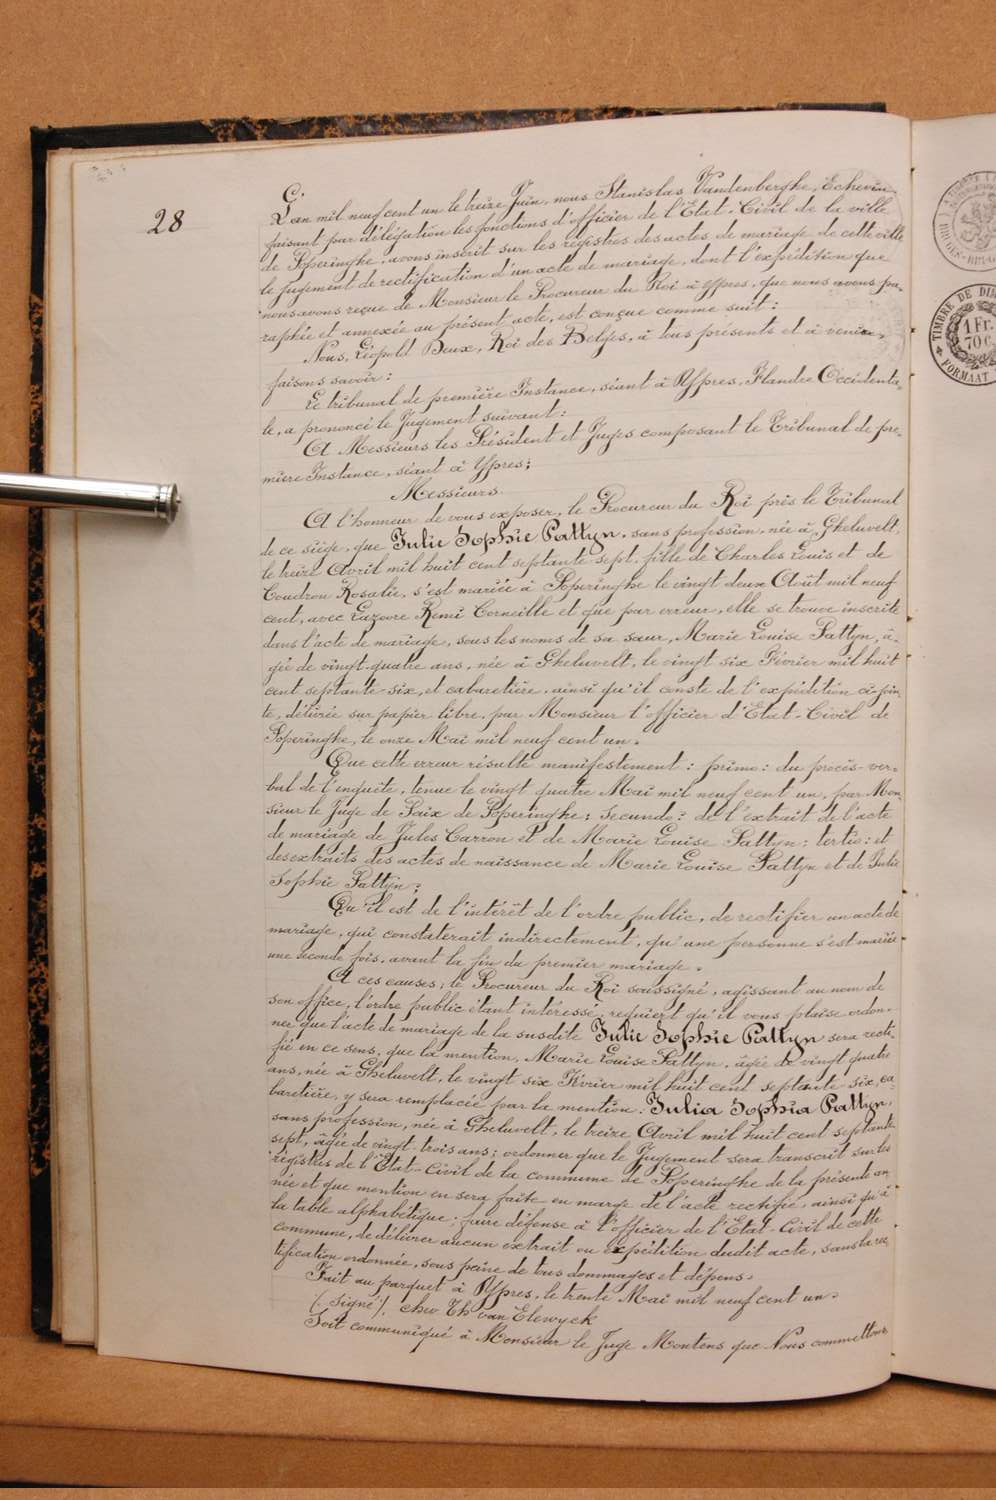 28
L'an mil neuf cent un le treize Juin, nous Stanislas Vandenberghe, Echevin
faisant par délégation les fonctions d'officier de l'Etat-Civil de la ville
de Poperinghe, avons inscrit sur les régistres des actes de mariage de cette ville
le jugement de rectification d'un acte de mariage, dont l'expédition que
nous avons reçue de Monsieur le Procureur du Roi à Ypres, que nous avons pa-
raphée et annexée au présent acte, est conçue comme suit:
Nous, Léopold Deux, Roi des Belges, à tous présents et à venir,
faisons savoir:
Le tribunal de première Instance, séant à Ypres, Flandre Occidenta-
le, a prononcé le Jugement suivant:
A Messieurs les Président et Juges composant le Tribunal de pre-
mière Instance, séant à Ypres;
Messieurs.
A l'honneur de vous exposer, le Procureur du Roi près le Tribunal
de ce siège, que Julie Sophie Pattyn, sans profession, née à Gheluvelt,
le treize Avril mil huit cent septante sept, fille de Charles Louis et de
Coudron Rosalie, s'est mariée à Poperinghe le vingt deux Août mil neuf
cent, avec Lazoore Remi Corneille et que par erreur, elle se trouve inscrite
dans l'acte de mariage, sous les noms de sa sœur, Marie Louise Pattyn, â-
gée de vingt-quatre ans, née à Gheluvelt, le vingt six Février mil huit
cent septante-six, et cabaretière, ainsi qu'il conste de l'expédition ci-join-
te, délivrée sur papier libre, par Monsieur l'officier d'Etat-Civil de
Poperinghe, le onze Mai mil neuf cent un.
Que cette erreur résulte manifestement: primo: du procès-ver-
bal de l'enquête, tenue le vingt quatre Mai mil neuf cent un, par Mon-
sieur le Juge de Paix de Poperinghe; secundo: de l'extrait de l'acte
de mariage de Jules Carron et de Marie Louise Pattyn: tertio: et
des extraits des actes de naissance de Marie Louise Pattyn et de Julie
Sophie Pattyn;
Qu'il est de l'intérêt de l'ordre public, de rectifier un acte de
mariage, qui constaterait indirectement, qu'une personne s'est mariée
une seconde fois, avant la fin du premier mariage.
A ces causes; le Procureur du Roi soussigné, agissant au nom de
son office, l'ordre public étant intéressé, requiert qu'il vous plaise ordon-
ner que l'acte de mariage de la susdite Julie Sophie Pattyn sera recti-
fié en ce sens, que la mention, Marie Louise Pattyn, âgée de vingt quatre
ans, née à Gheluvelt, le vingt six Février mil huit cent septante-six, ca-
baretière, y sera remplacée par la mention: Julia Sophia Pattyn,
sans profession, née à Gheluvelt, le treize Avril mil huit cent septante
sept, âgée de vingt-trois ans; ordonner que le Jugement sera transcrit sur les
régistres de l'Etat-Civil de la commune de Poperinghe de la présente an-
née et que mention en sera faite en marge de l'acte rectifié, ainsi qu'à
la table alphabétique; faire défense à l'officier de l'Etat-Civil de cette
commune, de délivrer aucun extrait ou expédition dudit acte, sans la rec-
tification ordonnée, sous peine de tous dommages et dépens.
Fait au parquet à Ypres, le trente Mai mil neuf cent un.
(Signé), chev Th van Elewyck
Soit communiqué à Monsieur le Juge Montens que Nous commettons
TIMBRE DE DIM
1 Fr.
70 c.
FORMAAT